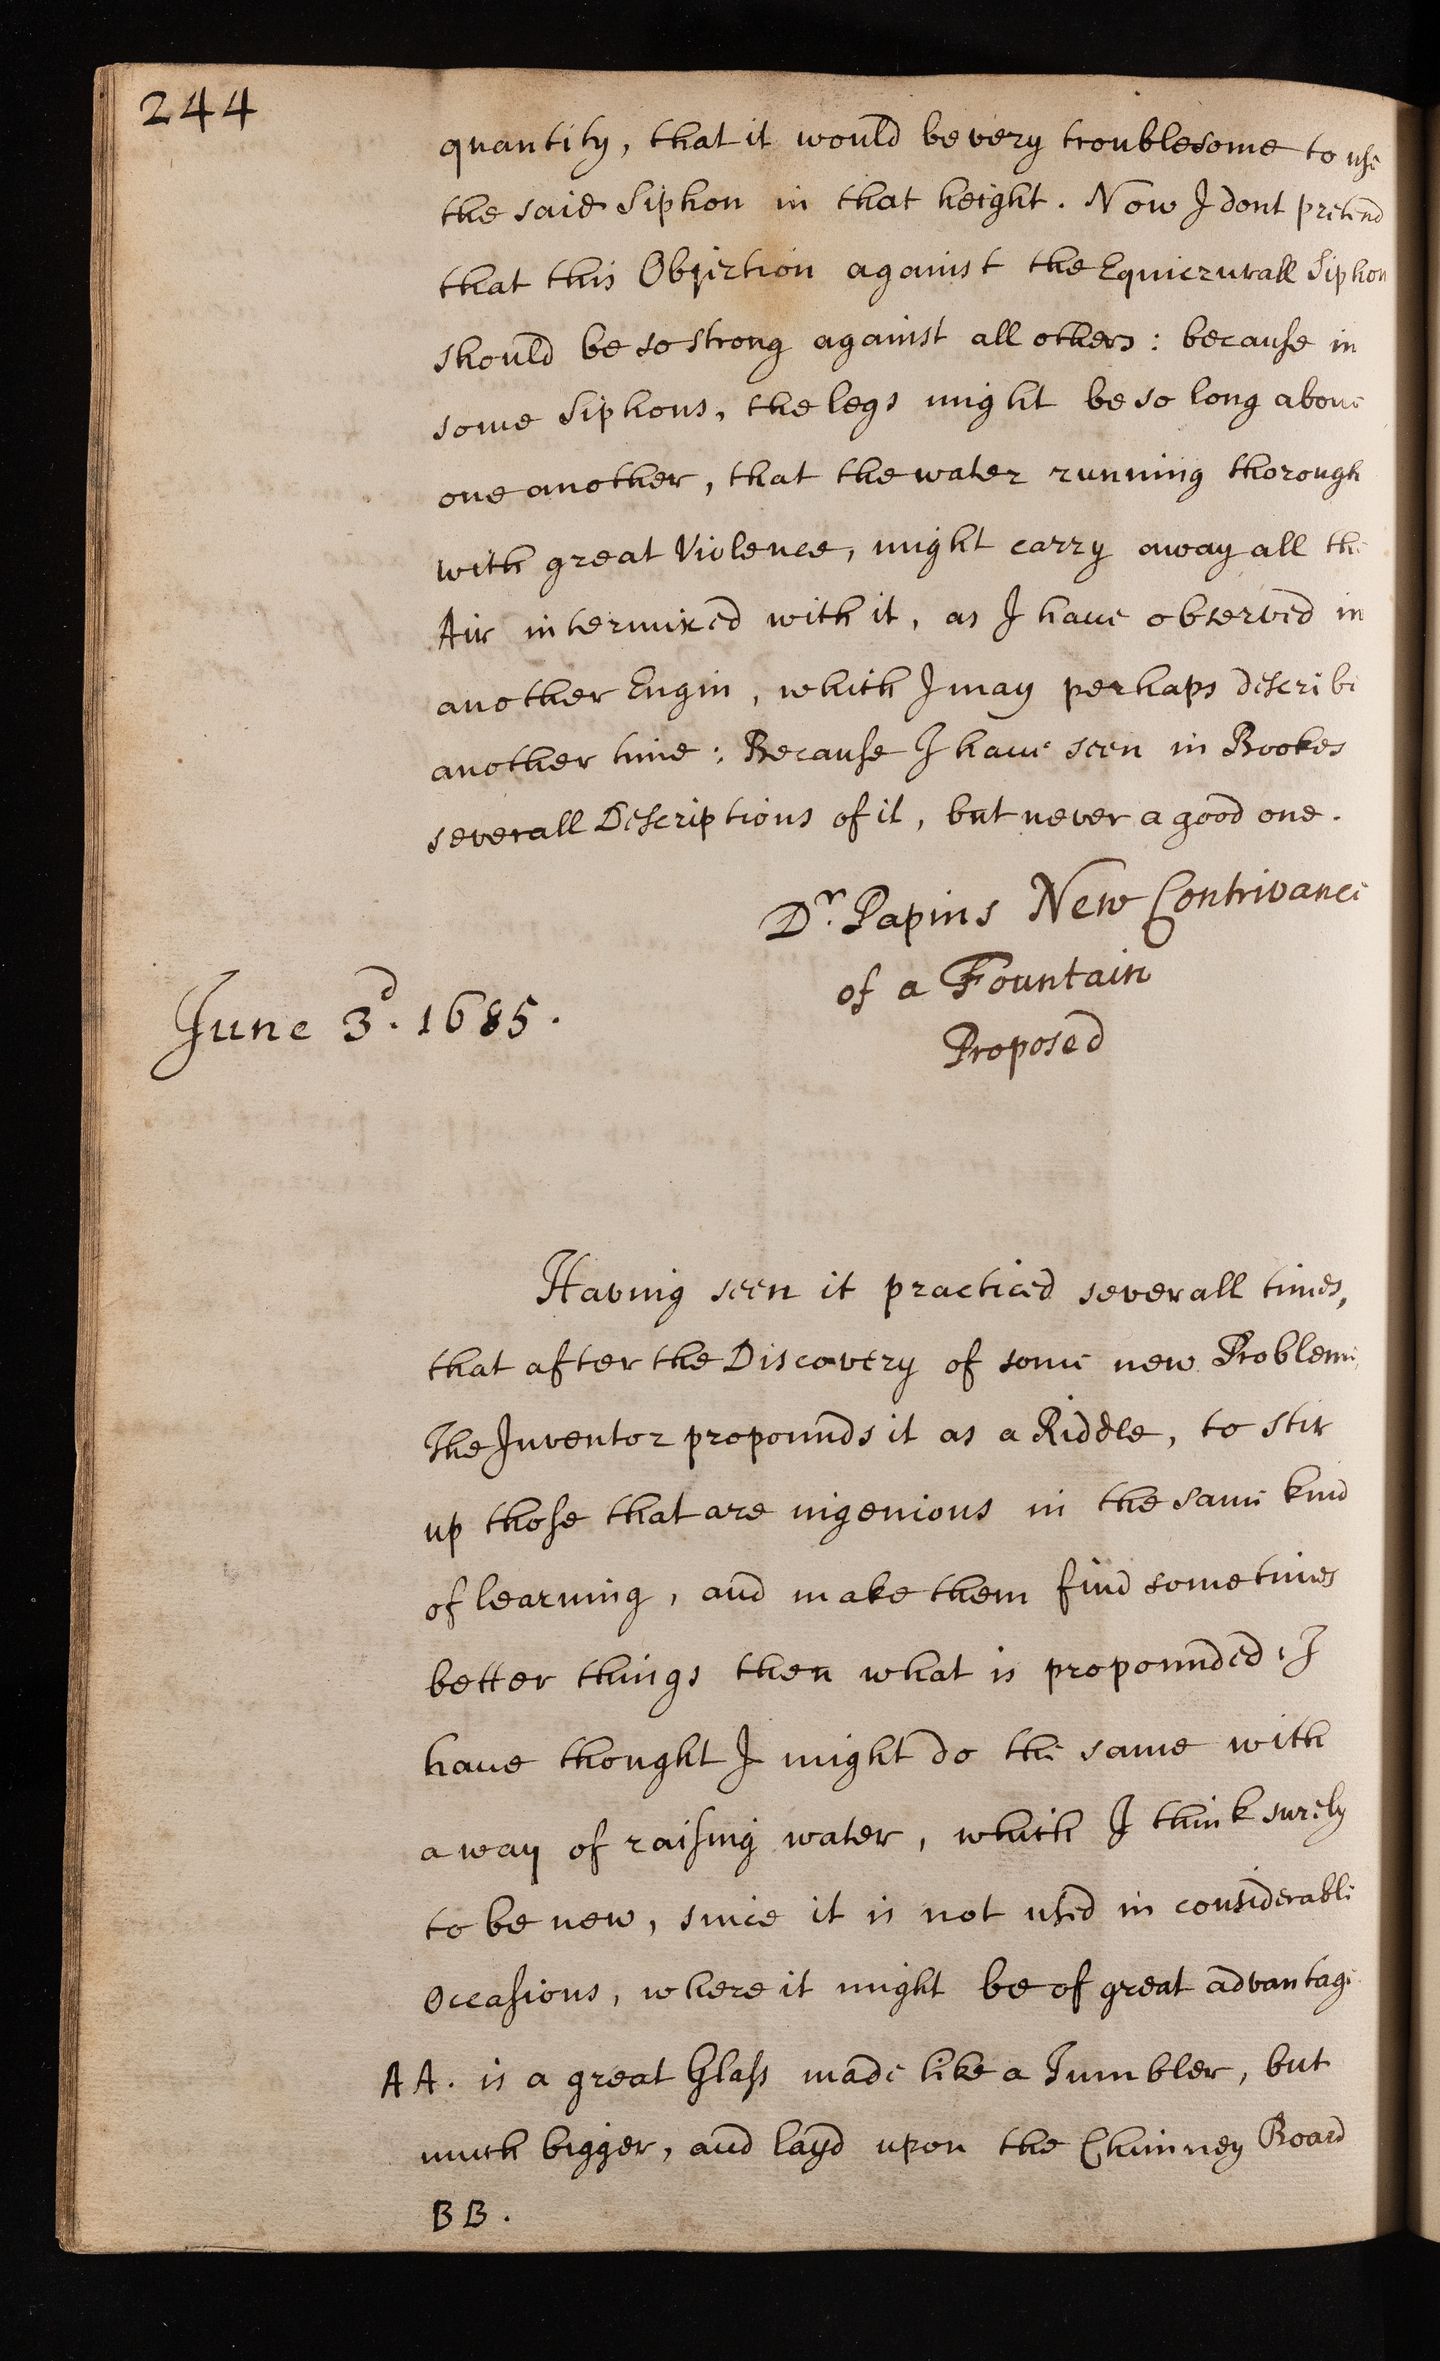 244
quantity, that it would be very troublesome to use
the said Siphon in that height. Now I dont pretend
that this Objection against the Equicrurall Siphon
should be so strong against all others: because in
some Siphons, the legs might be so long above
one another, that the water running thorough
with great Violence, might carry away all the
Air intermixed with it, as I have observed in
another Engin, which I may perhaps describe
another time; Because I have seen in Bookes
severall Descriptions of it, but never a good one.
Dr. Papins New Contrivance
of a Fountain
June 3d. 1685.
Proposed
Having seen it practiced severall times,
that after the Discovery of some new Probleme,
The Inventor propounds it as a Riddle, to stir
up those that are ingenious in the same kind
of learning, and make them find sometimes
better things then what is propounded; I
have thought I might do the same with
a way of raising water, which I think surely
to be new, since it is not used in considerable
Occasions, where it might be of great advantage.
AA. is a great Glass made like a Tumbler, but
much bigger, and layd upon the Chimney Board
BB.